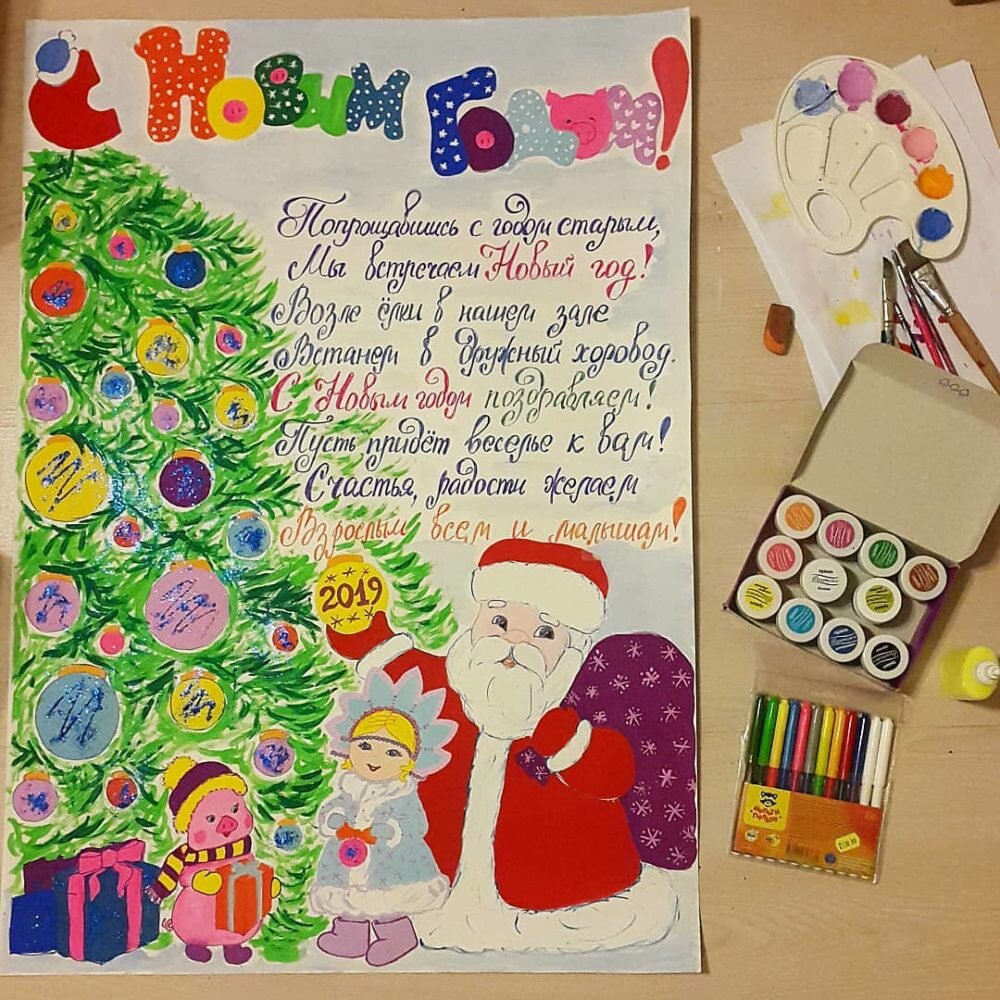 С Новым Годом!
Попрощавшись с годом старым,
Мы встречаем Новый год!
Возле ёлки в нашем зале
Встанем в дружный хоровод.
С Новым годом поздравляем!
Пусть придёт веселье к вам!
Счастья, радости желаем
Взрослым всем и малышам!
2019